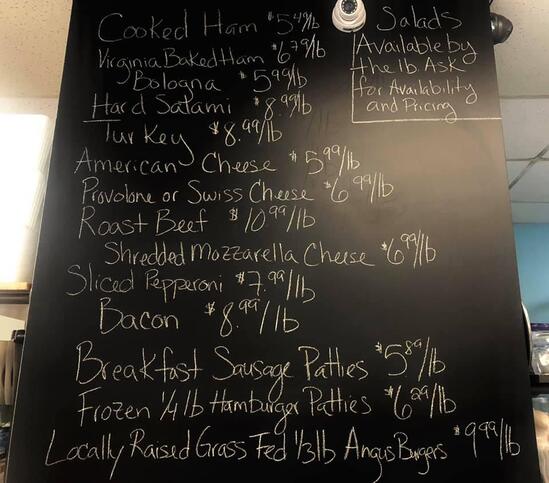 Cooked Ham $5.49/lb
Virginia Baked Ham $6.79/lb
Bologna $5.99/lb
Hard Salami $8.99/lb
Turkey $8.99/lb
American Cheese $5.99/lb
Provolone or Swiss Cheese $6.99/lb
Roast Beef $10.99/lb
Shredded Mozzarella Cheese $6.99/lb
Sliced Pepperoni $7.99/lb
Bacon $8.99/lb
Breakfast Sausage Patties $5.89/lb
Frozen 1/4 lb Hamburger Patties $6.29/lb
Locally Raised Grass Fed 1/3 lb Angus Burgers $9.99/lb
Salads
Available by
the lb Ask
for Availability
and Pricing